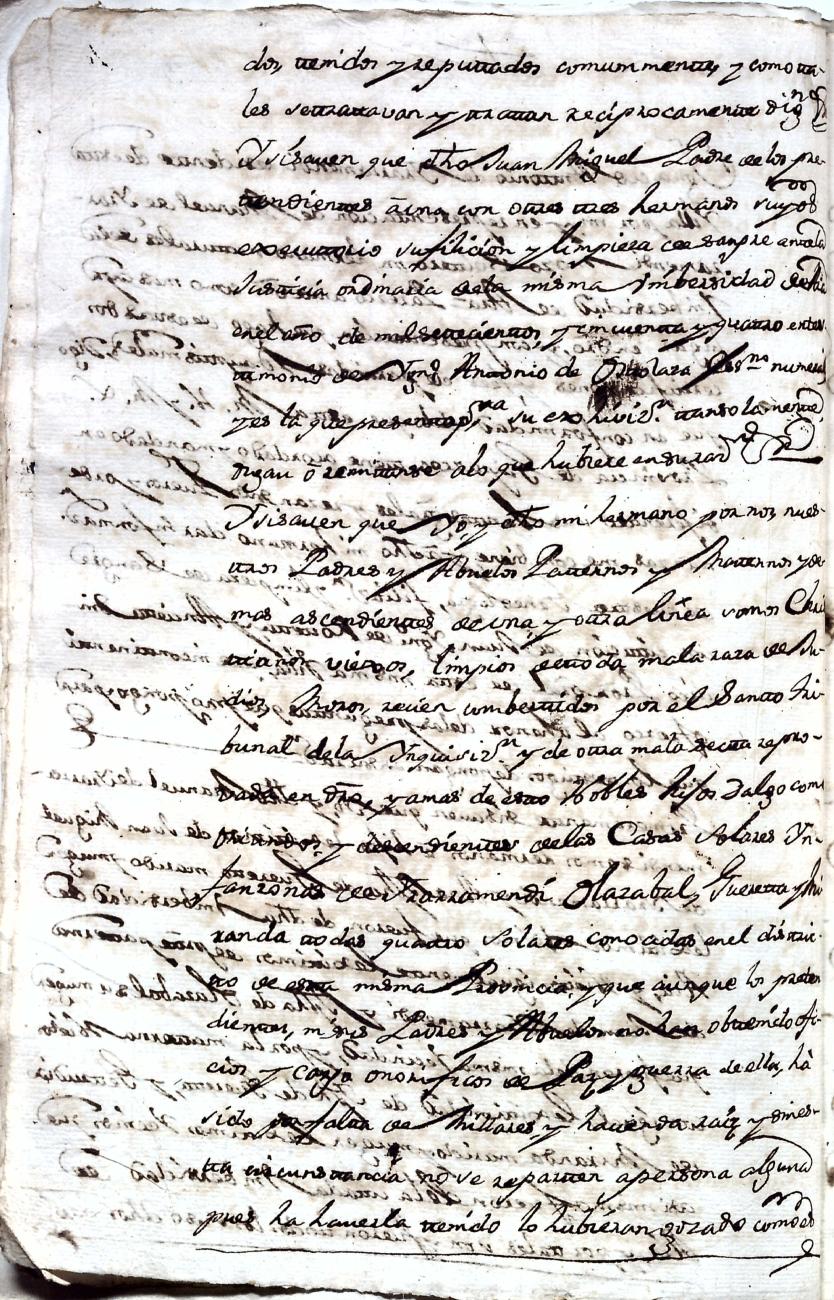 dos, tenidos y reputados comunmente, y como ta-
les se trattavan y trattan reciprocamente dig.n
Y si saven que dho Juan Miguel Padre de los pre-
tendientes â una con otros tres hermanos suyos
executorio su filicion y limpieza de sangre ante la
Justicia ordinaria de la misma Vnibersidad de
en el año de mil settecientos y cincuenta y quatro en tes-
timonio de Ygn.o Antonio de Ostolaza ess.no numeral
y es la que presenta p.ra su exhiviz.n tanso lamente
digan ô remitanse a lo que hubiere en su raz.n
Y si saven que Yo, y dho mi hermano por nos, nues-
tros Padres y Abuelos Patternos y Matternos y de-
mas ascendientes de una y otra linea somos Chris-
tianos viejos, limpios de toda mala raza de Ju-
dios, Moros, recien combertidos por el Santo Tri-
bunal de la Ynquisiz.n y de otra mala secta repro-
vada en dro, y a mas de esto Nobles hijos dalgo como
oriundos y descendientes de las Casas Solares Yn-
fanzonas de Yrarramendi Olazabal, Gueretta y Mi-
randa todas quatro solares conocidas en el distri-
to de esta misma Provincia, y que aunque los preten-
dientes, ni sus Padres y Abuelos no han obtenido ofi-
cios y cargo onorificos de Paz y guerra de ella, há
sido por falta de Millares, y hacienda raiz y sin es-
ta circunstancia no se reparten a persona alguna
pues ha haverla tenido lo hubieran gozado como